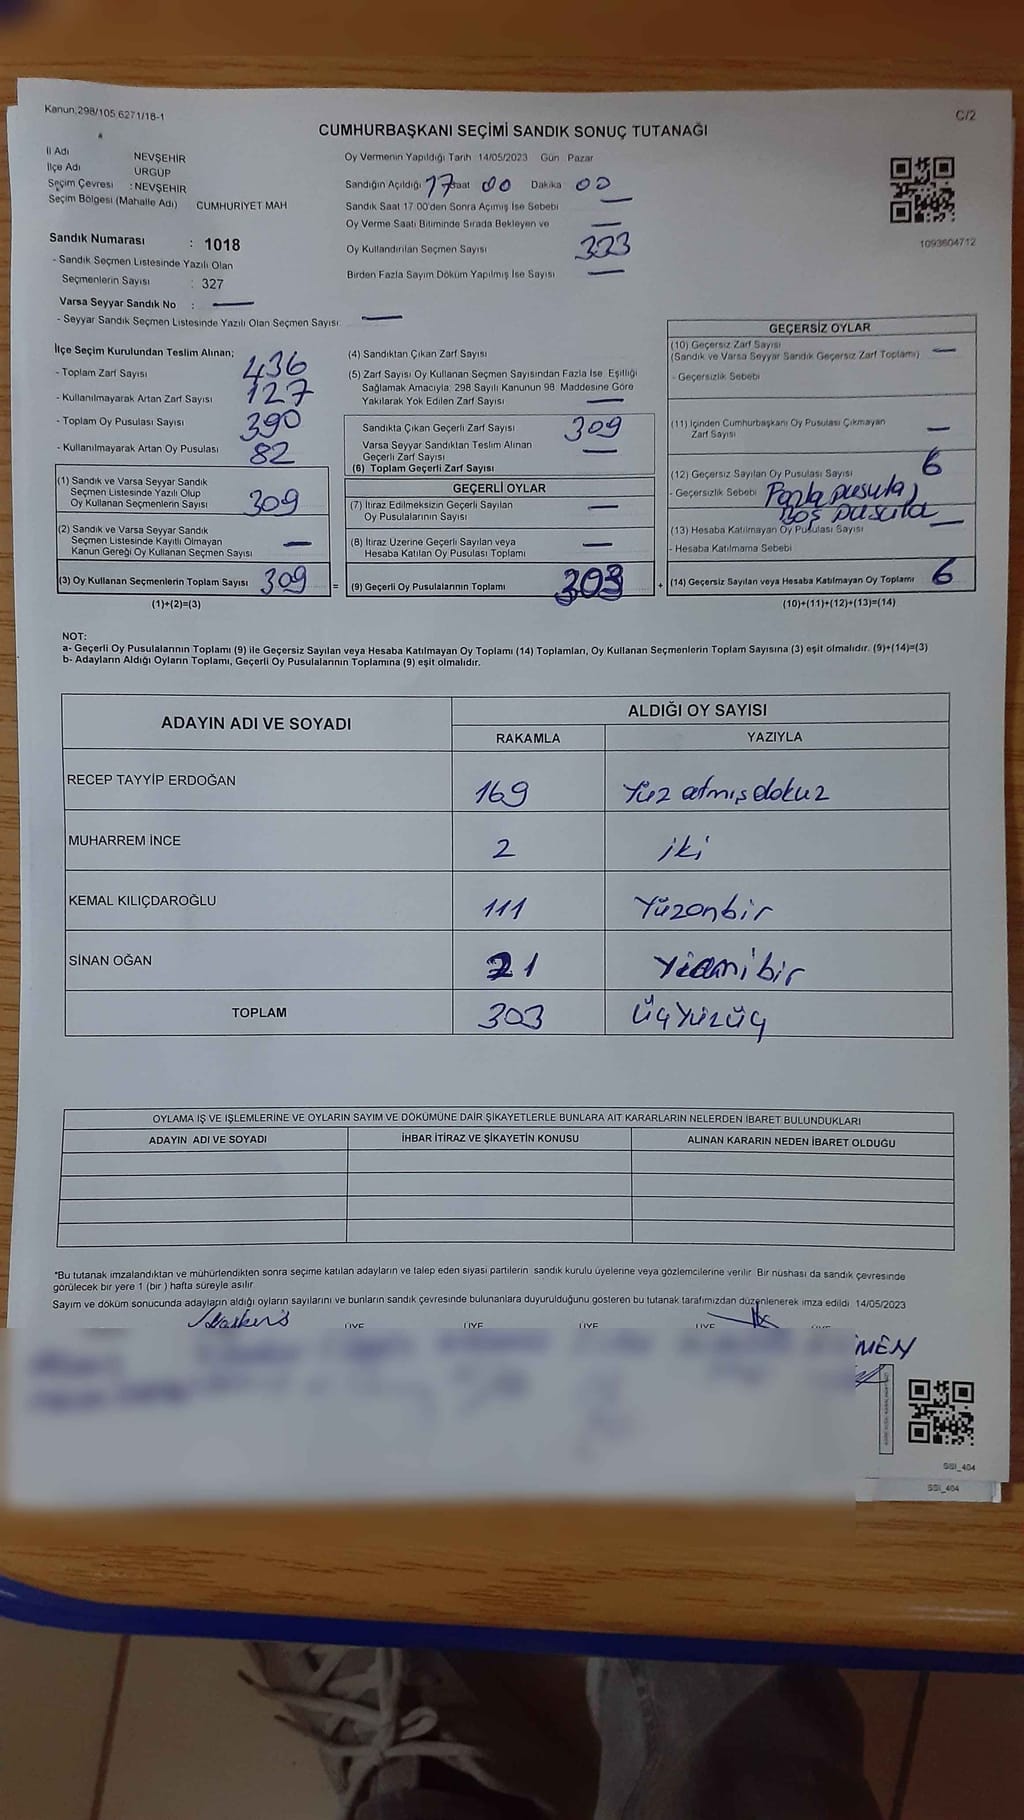 Kanun:298/105 6271/18-1
C/2
CUMHURBAŞKANI SEÇİMİ SANDIK SONUÇ TUTANAĞI
İl Adı NEVŞEHİR
İlçe Adı ÜRGÜP
Seçim Çevresi : NEVŞEHİR
Seçim Bölgesi (Mahalle Adı) CUMHURİYET MAH
Sandık Numarası : 1018
- Sandık Seçmen Listesinde Yazılı Olan
Seçmenlerin Sayısı : 327
Varsa Seyyar Sandık No : —
- Seyyar Sandık Seçmen Listesinde Yazılı Olan Seçmen Sayısı: —
Oy Vermenin Yapıldığı Tarih 14/05/2023 Gün Pazar
Sandığın Açıldığı 17 Saat 00 Dakika 00
Sandık Saat 17:00'den Sonra Açımış İse Sebebi —
Oy Verme Saati Bitiminde Sırada Bekleyen ve —
Oy Kullandırılan Seçmen Sayısı
Birden Fazla Sayım Döküm Yapılmış İse Sayısı —
1093604712
İlçe Seçim Kurulundan Teslim Alınan;
- Toplam Zarf Sayısı 436
- Kullanılmayarak Artan Zarf Sayısı 127
- Toplam Oy Pusulası Sayısı 390
- Kullanılmayarak Artan Oy Pusulası 82
(1) Sandık ve Varsa Seyyar Sandık
Seçmen Listesinde Yazılı Olup
Oy Kullanan Seçmenlerin Sayısı 309
(2) Sandık ve Varsa Seyyar Sandık
Seçmen Listesinde Kayıtlı Olmayan
Kanun Gereği Oy Kullanan Seçmen Sayısı —
(3) Oy Kullanan Seçmenlerin Toplam Sayısı 309 =
(1)+(2)=(3)
(4) Sandıktan Çıkan Zarf Sayısı
(5) Zarf Sayısı Oy Kullanan Seçmen Sayısından Fazla İse, Eşitliği
Sağlamak Amacıyla; 298 Sayılı Kanunun 98. Maddesine Göre
Yakılarak Yok Edilen Zarf Sayısı —
Sandıkta Çıkan Geçerli Zarf Sayısı 309
Varsa Seyyar Sandıktan Teslim Alınan
Geçerli Zarf Sayısı —
(6) Toplam Geçerli Zarf Sayısı
GEÇERLİ OYLAR
(7) İtiraz Edilmeksizin Geçerli Sayılan
Oy Pusulalarının Sayısı —
(8) İtiraz Üzerine Geçerli Sayılan veya
Hesaba Katılan Oy Pusulası Toplamı —
(9) Geçerli Oy Pusulalarının Toplamı 303 +
GEÇERSİZ OYLAR
(10) Geçersiz Zarf Sayısı
(Sandık ve Varsa Seyyar Sandık Geçersiz Zarf Toplamı) —
- Geçersizlik Sebebi
(11) İçinden Cumhurbaşkanı Oy Pusulası Çıkmayan
Zarf Sayısı —
(12) Geçersiz Sayılan Oy Pusulası Sayısı 6
- Geçersizlik Sebebi Fazla pusula,
Boş pusula
(13) Hesaba Katılmayan Oy Pusulası Sayısı —
- Hesaba Katılmama Sebebi
(14) Geçersiz Sayılan veya Hesaba Katılmayan Oy Toplamı 6
(10)+(11)+(12)+(13)=(14)
NOT:
a- Geçerli Oy Pusulalarının Toplamı (9) ile Geçersiz Sayılan veya Hesaba Katılmayan Oy Toplamı (14) Toplamları, Oy Kullanan Seçmenlerin Toplam Sayısına (3) eşit olmalıdır. (9)+(14)=(3)
b- Adayların Aldığı Oyların Toplamı, Geçerli Oy Pusulalarının Toplamına (9) eşit olmalıdır.
ADAYIN ADI VE SOYADI ALDIĞI OY SAYISI
RAKAMLA YAZIYLA
RECEP TAYYİP ERDOĞAN 169 Yüz atmış dokuz
MUHARREM İNCE 2 iki
KEMAL KILIÇDAROĞLU 111 Yüzonbir
SİNAN OĞAN 21 Yirmibir
TOPLAM 303 ÜçYüzüç
OYLAMA İŞ VE İŞLEMLERİNE VE OYLARIN SAYIM VE DÖKÜMÜNE DAİR ŞİKAYETLERLE BUNLARA AİT KARARLARIN NELERDEN İBARET BULUNDUKLARI
ADAYIN ADI VE SOYADI İHBAR İTİRAZ VE ŞİKAYETİN KONUSU ALINAN KARARIN NEDEN İBARET OLDUĞU
*Bu tutanak imzalandıktan ve mühürlendikten sonra seçime katılan adayların ve talep eden siyasi partilerin sandık kurulu üyelerine veya gözlemcilerine verilir. Bir nüshası da sandık çevresinde
görülecek bir yere 1 (bir) hafta süreyle asılır.
Sayım ve döküm sonucunda adayların aldığı oyların sayılarını ve bunların sandık çevresinde bulunanlara duyurulduğunu gösteren bu tutanak tarafımızdan düzenlenerek imza edildi. 14/05/2023
ÜYE ÜYE ÜYE ÜYE
MEN
SSI_404
SSI_404